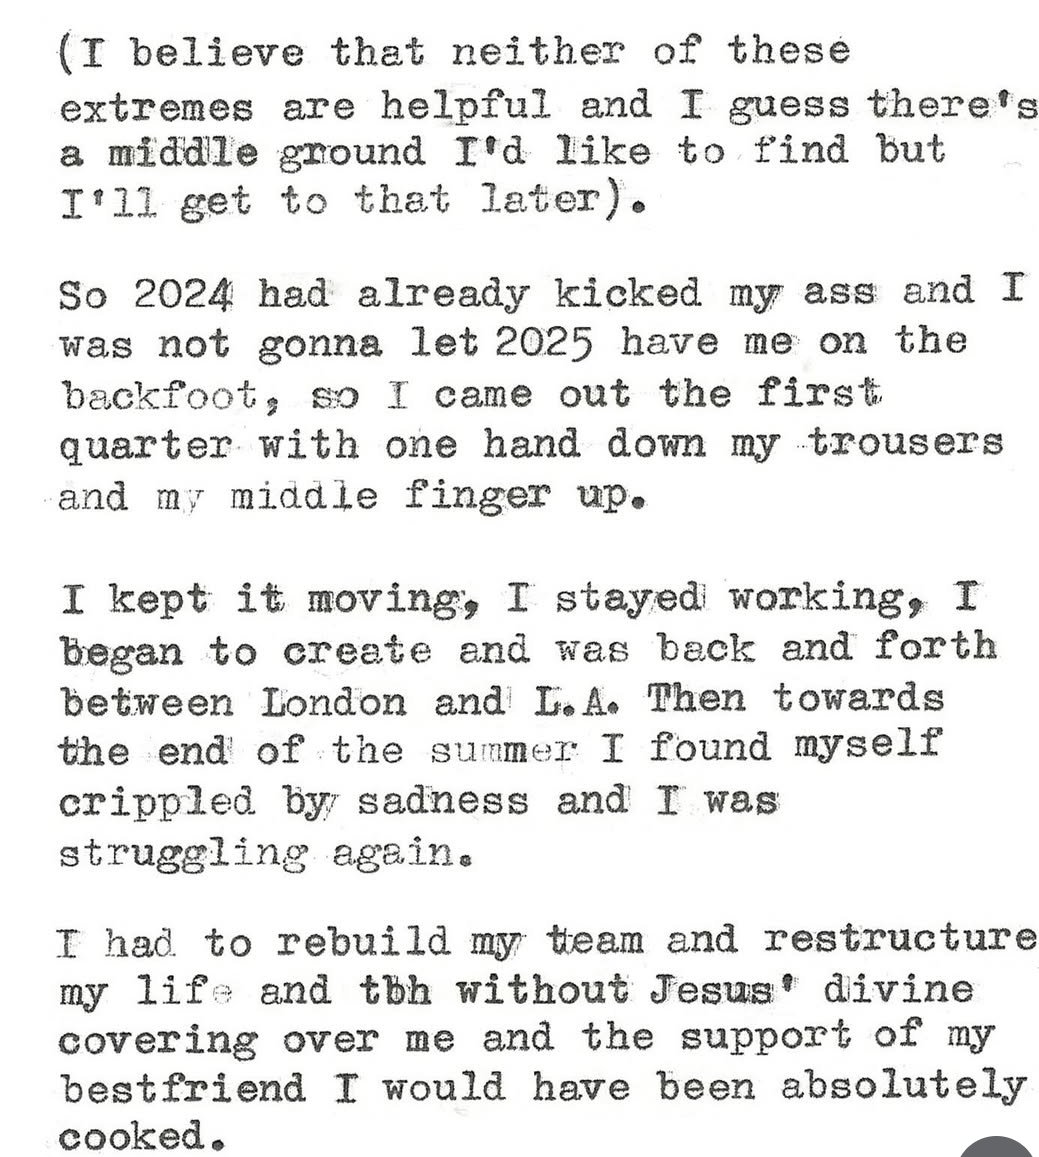 (I believe that neither of these
extremes are helpful and I guess there's
a middle ground I'd like to find but
I'll get to that later).
So 2024 had already kicked my ass and I
was not gonna let 2025 have me on the
backfoot, so I came out the first
quarter with one hand down my trousers
and my middle finger up.
I kept it moving, I stayed working, I
began to create and was back and forth
between London and L.A. Then towards
the end of the summer I found myself
crippled by sadness and I was
struggling again.
I had to rebuild my team and restructure
my life and tbh without Jesus' divine
covering over me and the support of my
bestfriend I would have been absolutely
cooked.